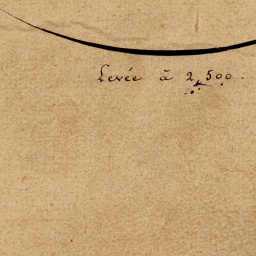 Levée à 2,500.